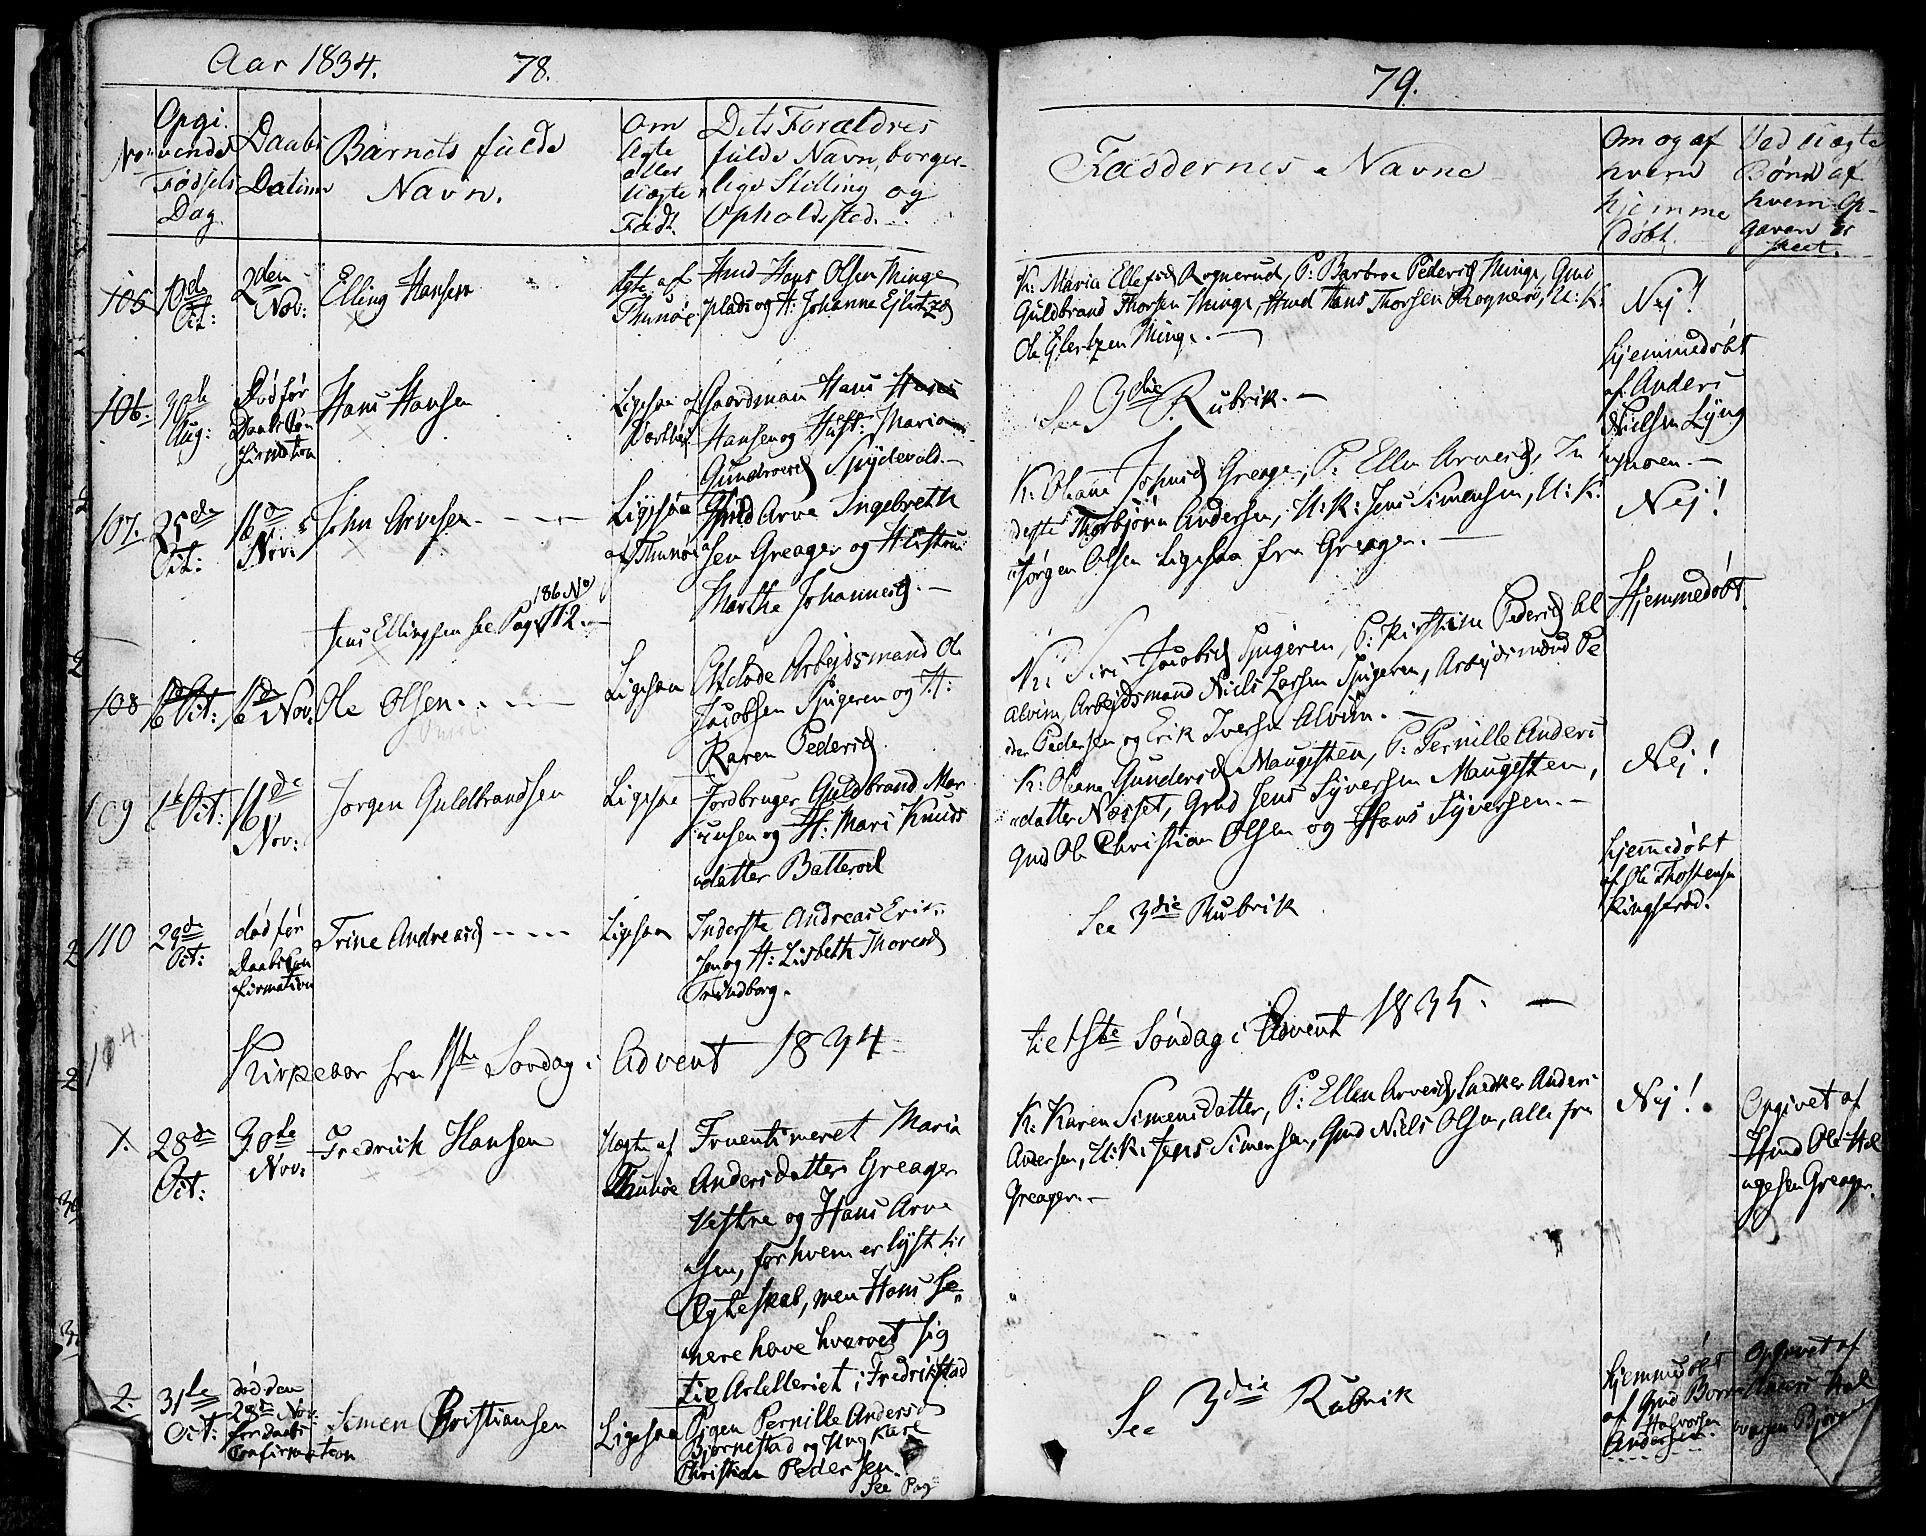 Aar 1834. 78.
No:
Opgi
vende
Fødsels
Dag.
Daabs
Datum
Barnets fulde
Navn.
Om
Ægte
eller
Uægte
Født.
Dets Forældres
fulde Navn, borger-
lige Stilling og
Opholdsted.
105
10de
Oct:
2den
Nov:
Elling Hansen
Ægte af
Thunøe
Hmd Hans Olsen Minge
plads og H: Johanne
106.
30te
Aug:
Død før
Daabs Con
firmation
Hans Hansen
Ligesaa af
Gaardmand Hans Hans
Hansen og Hust: Marian
Spydevold.-
107.
25de
Oct:
16de
Nov:
John Arvesen
Ligesaa
af Thunøe
Gmd Arve Ingebreth
sen Greager og Hustrue
Marthe Johannesd.-
186 No
Jens Ellingsen see Pag 112.
108
16 Oct:
16de Nov:
Ole Olsen
Ligesaa
Afdøde Arbejdsmand Ole
Jacobsen Spigeren og H:
Karen Pedersd
109
16 Oct:
16de
Nov:
Jørgen Guldbrandsen
Ligesaa
Jordbruger Guldbrand Mor
tensen og H: Mari Knuds
datter Batterød
110
29de
Oct:
død før
Daabs Con
firmation
Trine Andreasd
Ligesaa
Inderste Andreas Erik
sen og H: Lisbeth Thoresd
Trindborg.
104
Kirkeaar fra 1ste Søndag i Advent 1834
1.
28de
Oct:
30te
Nov:
Fredrick Hansen
Uægte af
Thunøe
Fruentimeret Maria
Andersdatter Greager
Vestre og Hans Arve
sen, for hvem er lyst til
Ægteskab, men Hans se
nere have hvervet sig
til Artelleriet i Fredrikstad
2.
31te
Oct:
død den
28de Nov:
for daabs
Confirmation
Simen Christiansen
Ligesaa
Pigen Pernille Andersd
Bjørnestad og Ungkarl
Christian Pedersen.
See Pag
79.
Faddernes Navne
Om og af
hvem
hjemme
døbt.
Ved uægte
Børn af
hvem Op-
gaven er
skeet.
K: Maria Ellefsd Rognerud, P: Barbroe Pedersd Minge, Gmd
Guldbrand Thorsen Minge, Hmd Hans Thorsen Rognerød, U: K:
Ole Eilertzen Minge.
Nej!
See 3die Rubrik.-
hjemmedøbt
af Anders
Nielsen Lyng
moen.-
K: Oleane Greager, P: Ellen Arvesd, In
derste Thorbjørn Andersen, U: K: Jens Simensen, U: K:
Jørgen Olsen Ligesaa fra Greager.-
Nej!
K: Siri Jacobsd Spigeren, P: Kirstine Pedersd Al
Alvim, Arbejdsmand Niels Larsen Spigeren, Arbejdsmænd Pe
der Pedersen og Erik Iversen Alvim.-
Hjemmedøbt
K: Oleane Gundersd Maugesten, P: Pernille Anders
datter Næsset, Gmd Jens Syversen Maugesten,
Gmd Ole Christian Olsen og Hans Syversen.-
Nej!
See 3die Rubrik
hjemedøbt
af Ole Thorstensen
Ringsrød.
til 1ste Søndag i Advent 1835.
K: Karen Simensdatter, P: Ellen Arvesd, Snedker Anders
Andersen, U: K: Jens Simensen, Gmd Niels Olsen, alle fra
Greager.-
Nej!
Opgivet af
Hmd Ole Hel
gesen Greager.
See 3die Rubrik
hjemmedøbt
af Gmd
Halvorsen
Andersen.
Opgivet af